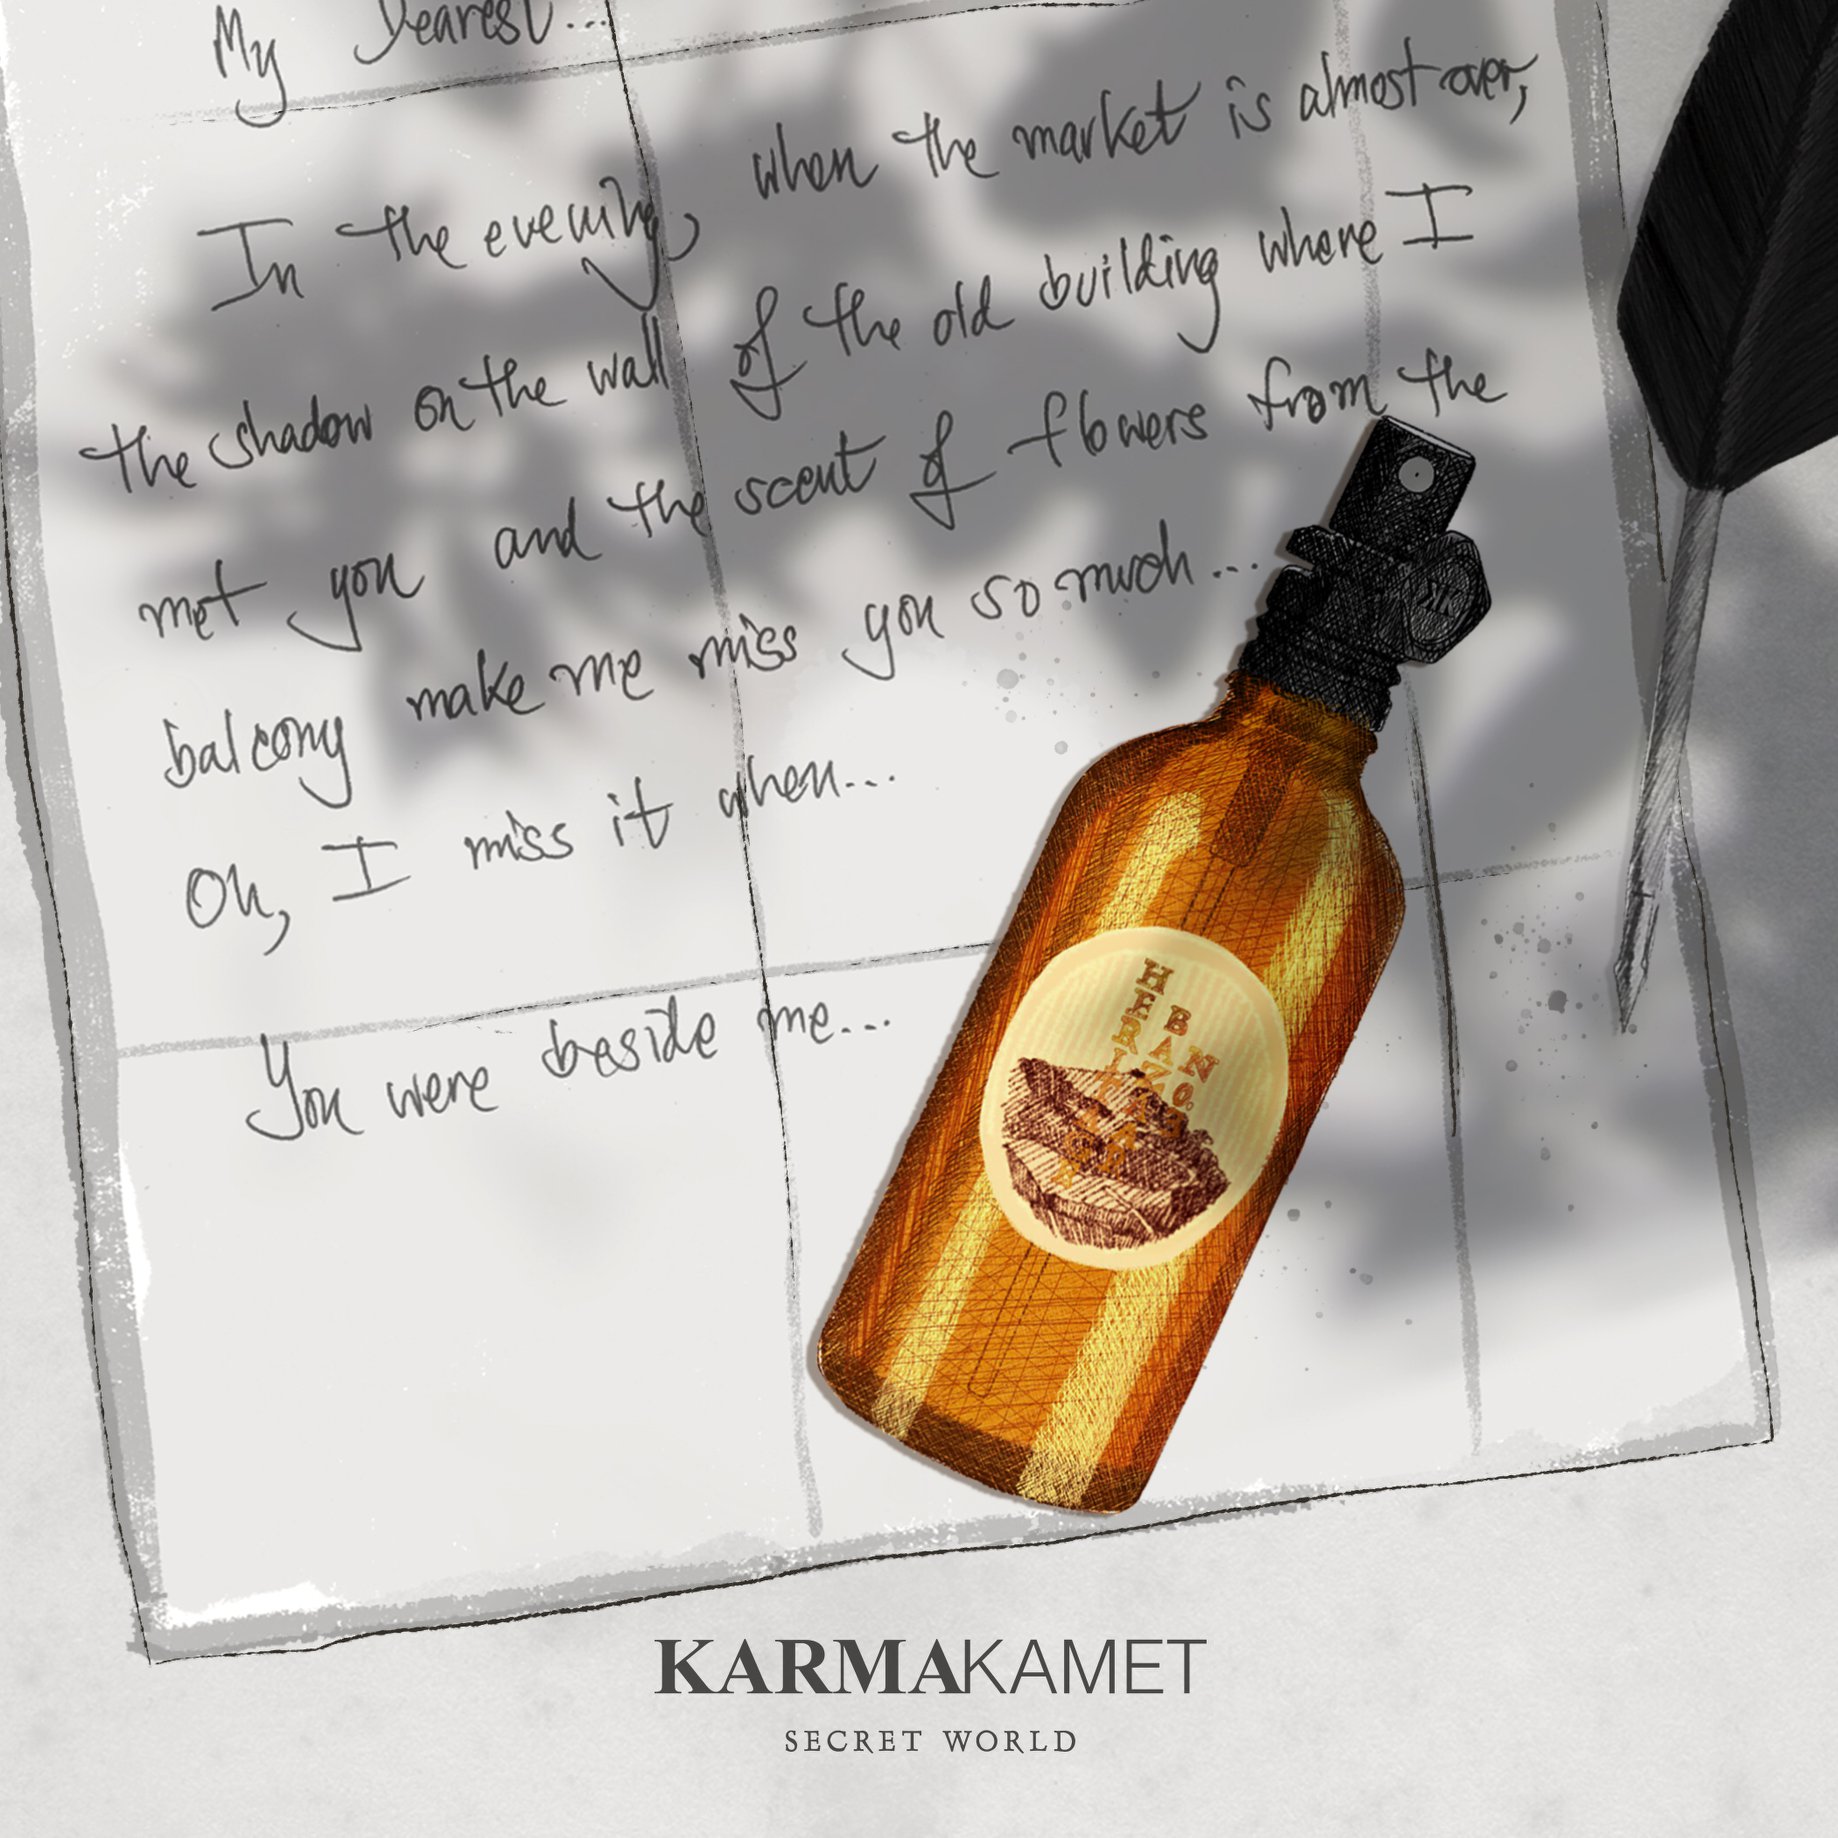 My Dearest...
In the evening, when the market is almost over,
the shadow on the wall of the old building where I
met you and the scent of flowers from the
balcony make me miss you so much...
Oh, I miss it when...
You were beside me...
KK
HERITAGE
BAZAAR
NO.
KARMAKAMET
SECRET WORLD